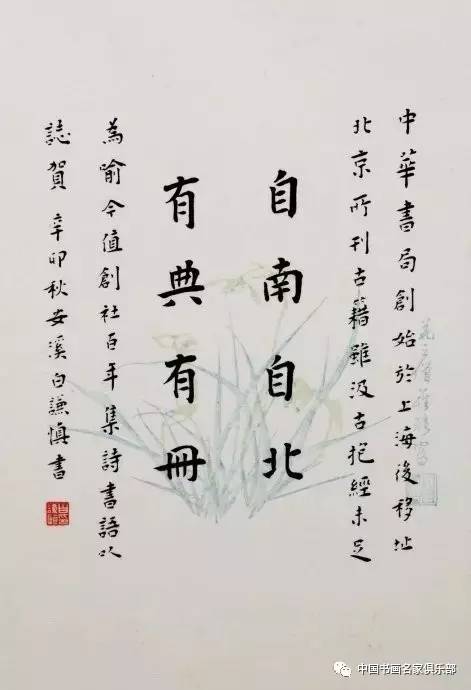 中華書局創始於上海後移址
北京所刊古籍雖汲古抱經未足
自南自北
有典有冊
為喻今值創社百年集詩書語以
誌賀 辛卯秋安溪白謙慎書
中国书画名家俱乐部